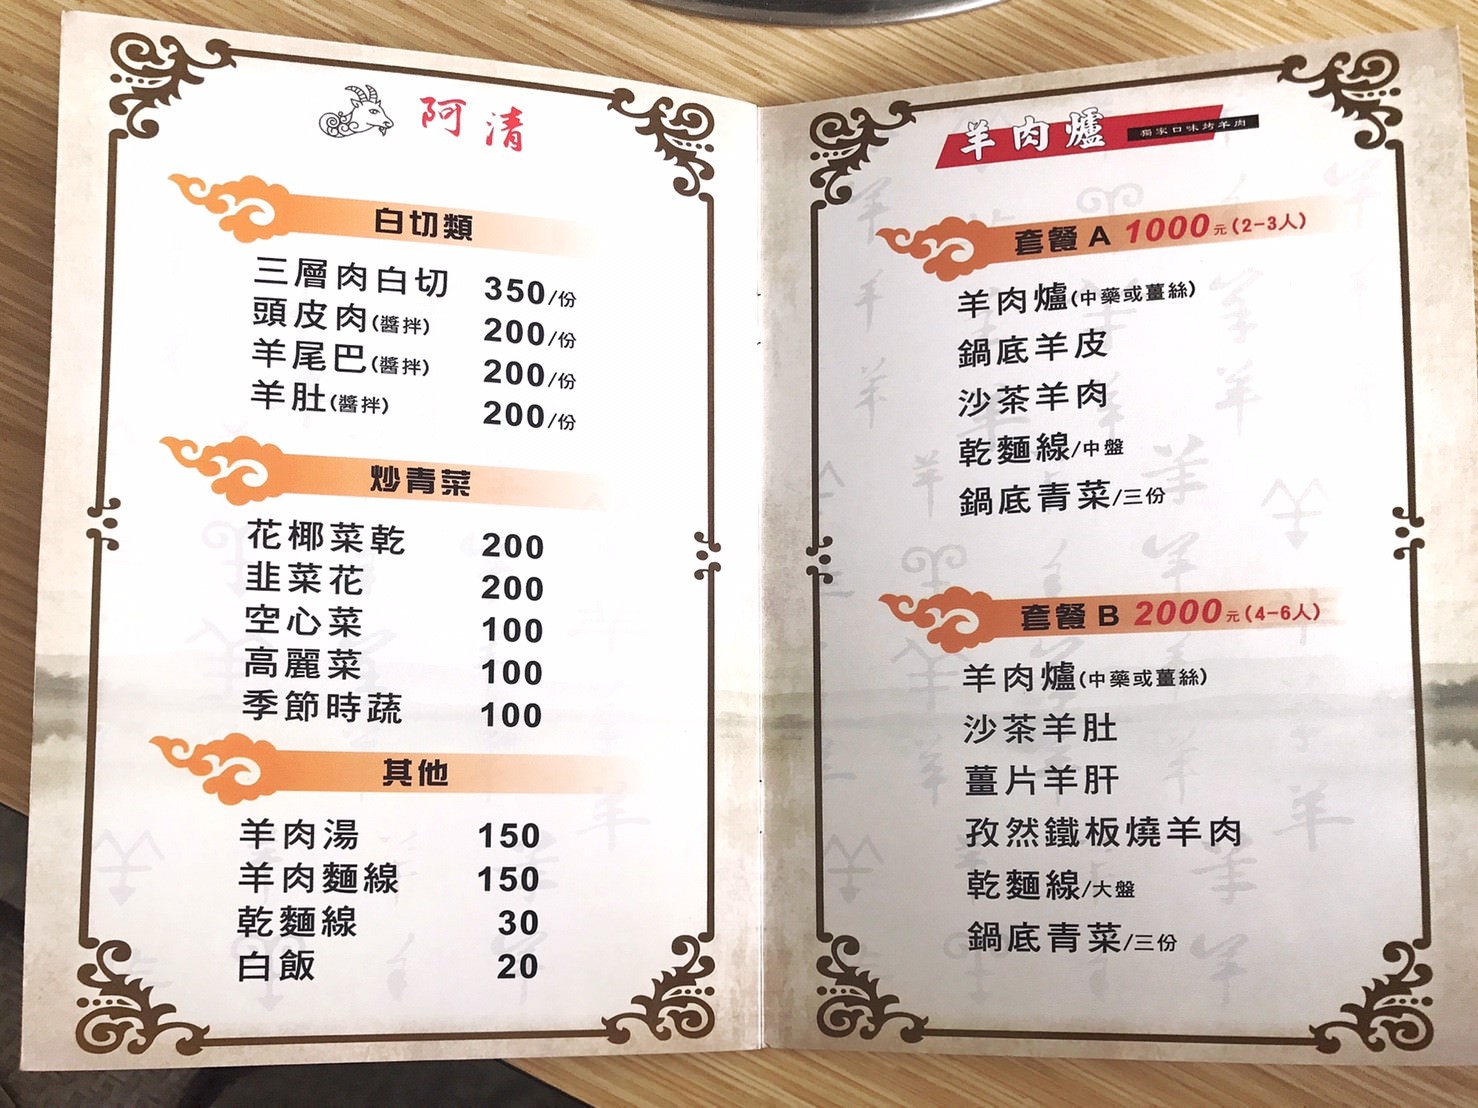 阿清
白切類
三層肉白切 350/份
頭皮肉(醬拌) 200/份
羊尾巴(醬拌) 200/份
羊肚(醬拌) 200/份
炒青菜
花椰菜乾 200
韭菜花 200
空心菜 100
高麗菜 100
季節時蔬 100
其他
羊肉湯 150
羊肉麵線 150
乾麵線 30
白飯 20
羊肉爐 獨家口味烤羊肉
套餐 A 1000元(2-3人)
羊肉爐(中藥或薑絲)
鍋底羊皮
沙茶羊肉
乾麵線/中盤
鍋底青菜/三份
套餐 B 2000元(4-6人)
羊肉爐(中藥或薑絲)
沙茶羊肚
薑片羊肝
孜然鐵板燒羊肉
乾麵線/大盤
鍋底青菜/三份